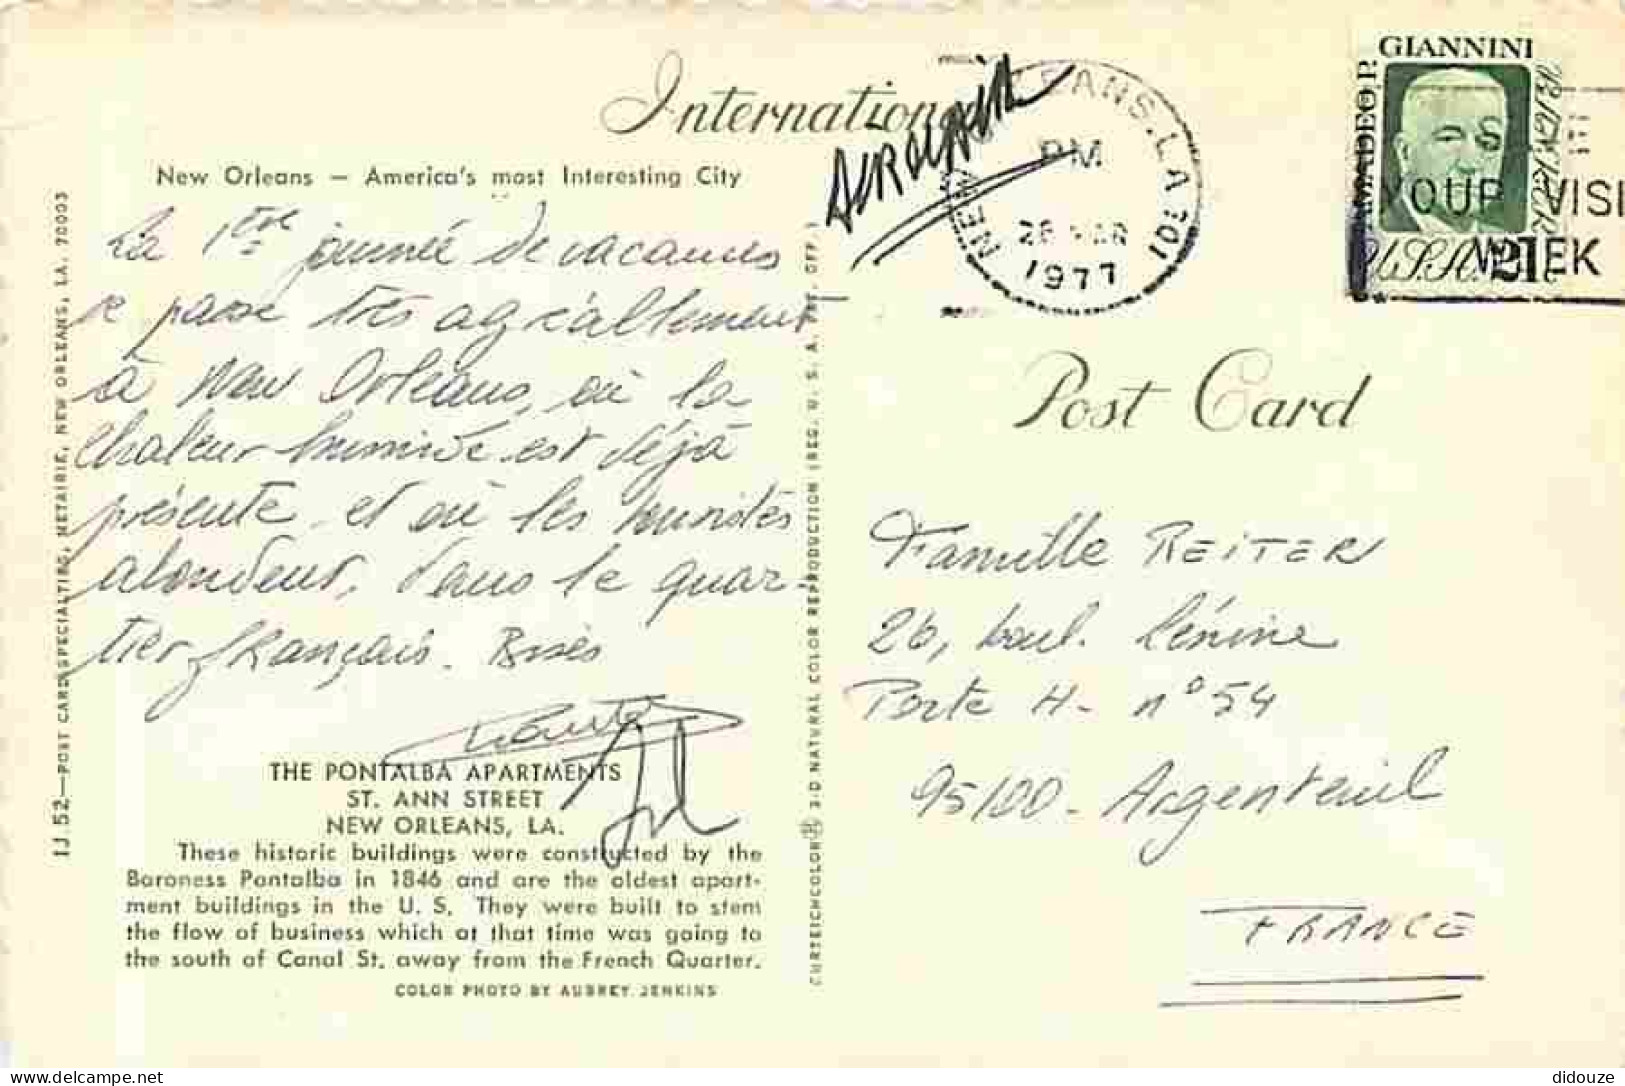 International
AÉROGRAMME
New Orleans — America's most Interesting City
La 1ère journée de vacances
se passe très agréablement
à New Orléans, où la
chaleur humide est déjà
présente et où les
abondent, dans le quar-
tier français. Bises
THE PONTALBA APARTMENTS
ST. ANN STREET
NEW ORLEANS, LA.
These historic buildings were constructed by the
Baroness Pontalba in 1846 and are the oldest apart-
ment buildings in the U. S. They were built to stem
the flow of business which at that time was going to
the south of Canal St. away from the French Quarter.
COLOR PHOTO BY AUBREY JENKINS
IJ 52—POST CARD SPECIALTIES, METAIRIE, NEW ORLEANS, LA. 70003
CURTEICHCOLOR® 3-D NATURAL COLOR REPRODUCTION (REG. U. S. A. PAT. OFF.)
NEW ORLEANS, LA 701
PM
28 MAR
1977
AMADEO P. GIANNINI
U.S.A. 21c
YOUR VISI
WEEK
Post Card
Famille REITER
26, boul. Lénine
Porte H - n° 54
95100 - Argenteuil
FRANCE
didouze